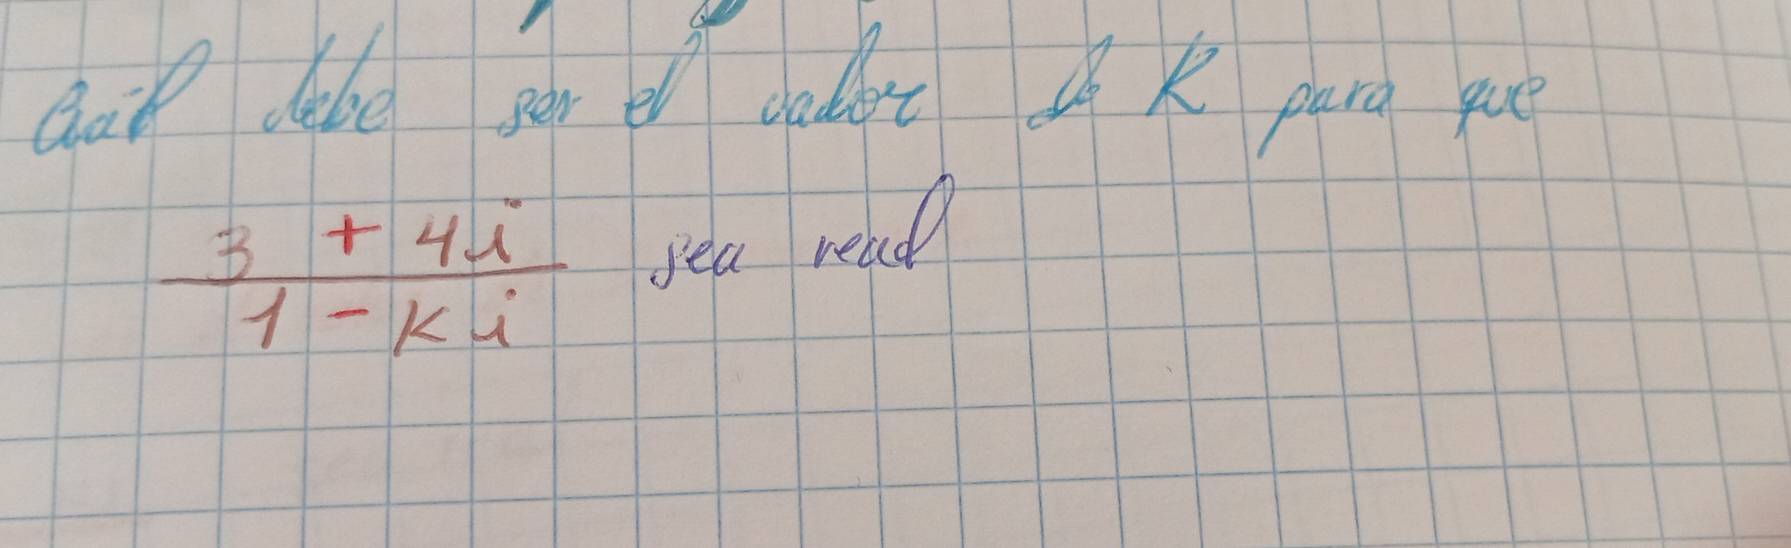 Cuál debe ser el valor de K para que
3 + 4i
sea real
1 - Ki